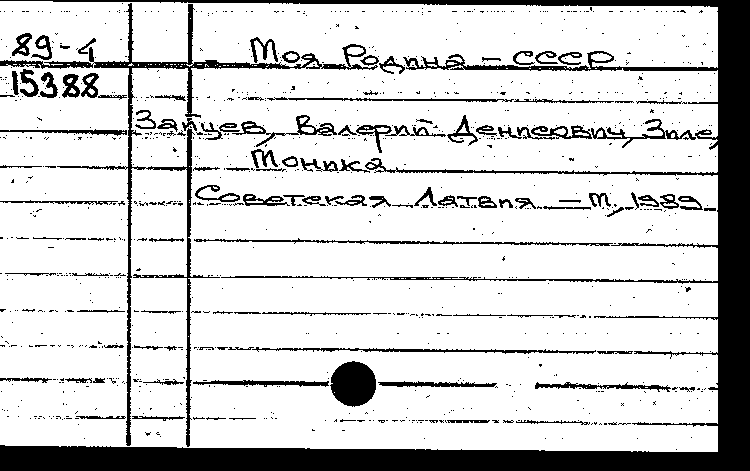 89-4
Моя Родина - СССР
15388
Зайцев, Валерий Денисович, Зиле,
Моника
Советская Латвия - М, 1989